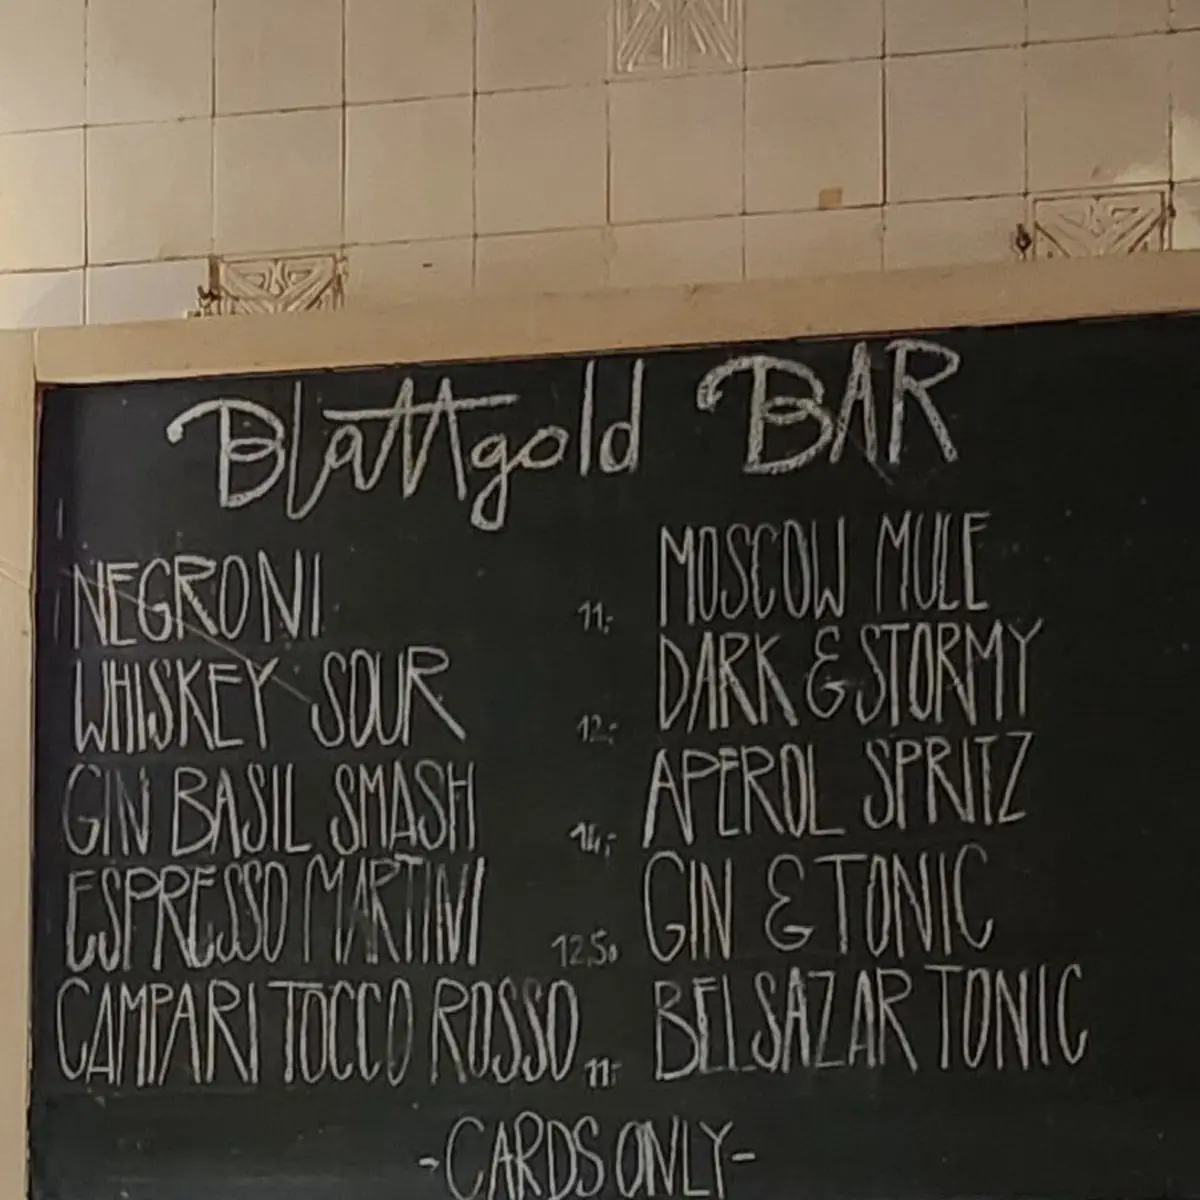 Blattgold BAR
NEGRONI 11,-
WHISKEY SOUR 12,-
GIN BASIL SMASH 14,-
ESPRESSO MARTINI 12,50
CAMPARI TOCCO ROSSO 11,-
MOSCOW MULE
DARK & STORMY
APEROL SPRITZ
GIN & TONIC
BELSAZAR TONIC
-CARDS ONLY-